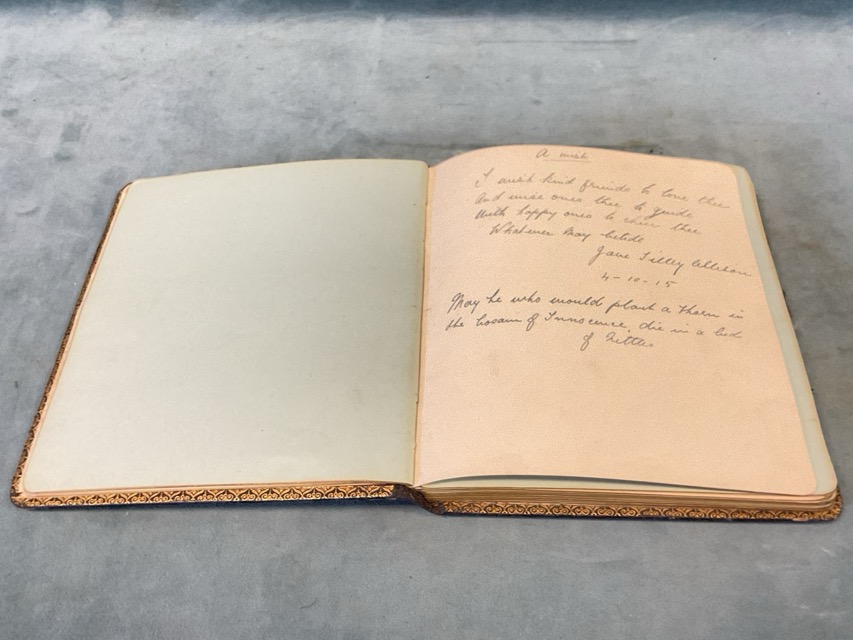 A wish
I wish kind friends to love thee
And wise ones thee to guide
With happy ones to cheer thee
Whatever May betide
Jane Tilley Allison
4-10-15
May he who would plant a Thorn in
the bosom of Innocence, die in a bed
of Nettles